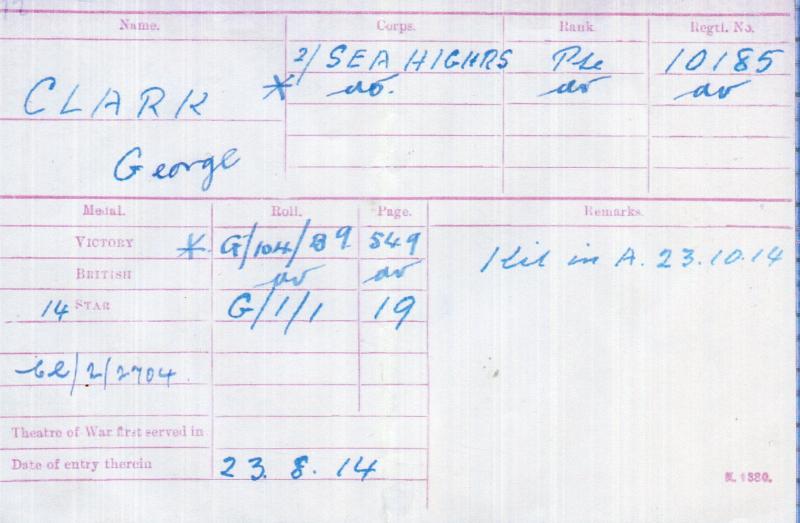 Name. Corps. Rank. Regtl. No.
2/ SEA HIGHRS Pte 10185
CLARK * do. do do
George
Medal. Roll. Page. Remarks.
VICTORY * G/104/89 549
BRITISH do do Kil in A. 23.10.14
14 STAR G/1/1 19
/2/2704.
Theatre of War first served in
Date of entry therein 23. 8. 14
K. 1380.